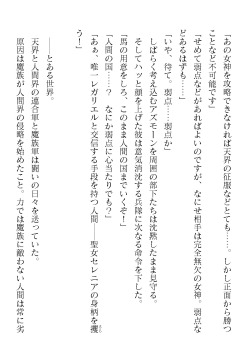 「あの女神を攻略できなければ天界の征服などとても……。しかし正面から勝つ
ことなど不可能です」
「せめて弱点などがあればよいのですが、なにせ相手は完全無欠の女神。弱点な
どあるはずも……」
「いや、待て。弱点……弱点か」
しばらく考え込むアズモーンを周囲の部下たちは沈黙したまま見守る。
そしてハッと顔を上げた彼は意気消沈する兵隊に次なる命令を下した。
「馬の用意をしろ。このまま人間の国までいくぞ！」
「人間の国……？　なにか弱点に心当たりでも？」
「あぁ、唯一レガリエルと交信する手段を持つ人間――聖女セレニアの身柄を攫
う！」
――とある世界。
天界と人間界の連合軍と魔族軍は闘いの日々を送っていた。
原因は魔族が人間界の侵略を始めたこと。力では魔族に敵わない人間は常に劣